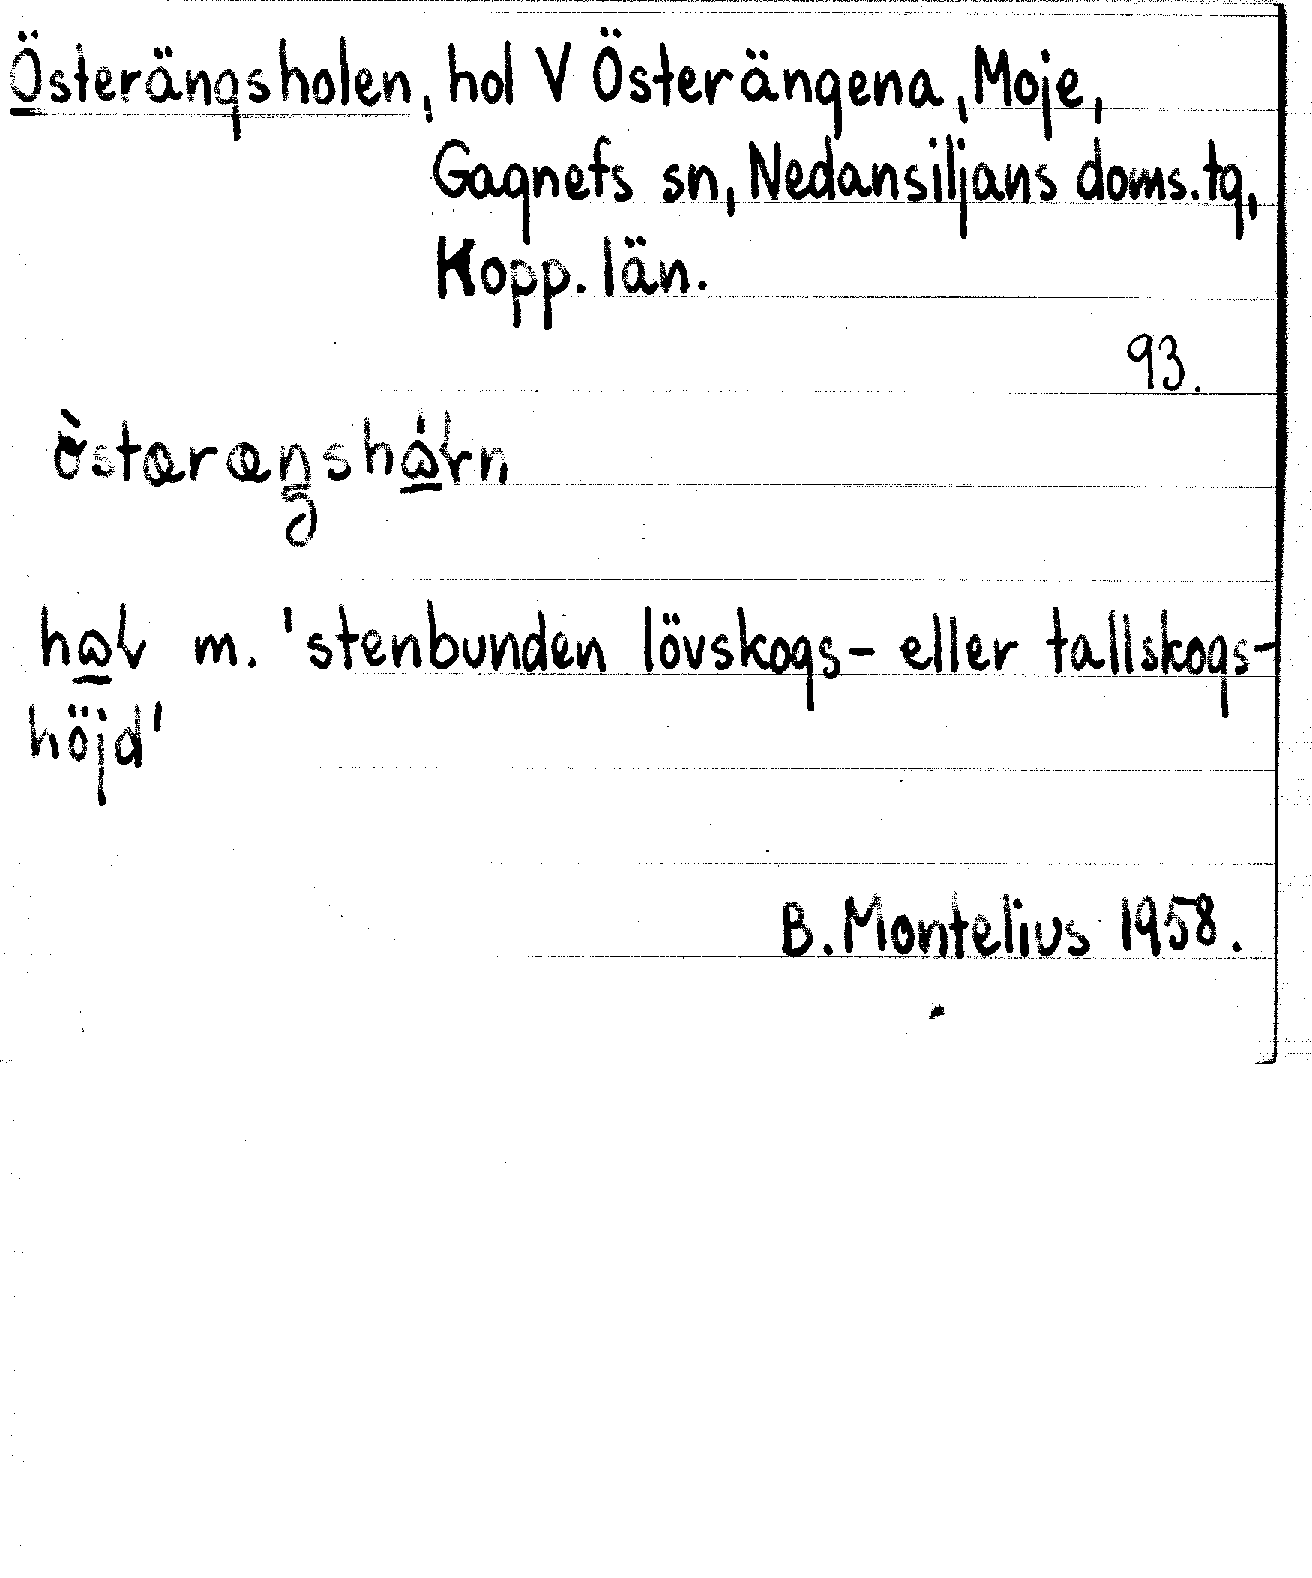 Österängsholen, hol V Österängena, Moje,
Gagnefs sn, Nedansiljans doms.tg,
Kopp. län.
93.
m. 'stenbunden lövskogs- eller tallskogs-
höjd'
B. Montelius 1958.